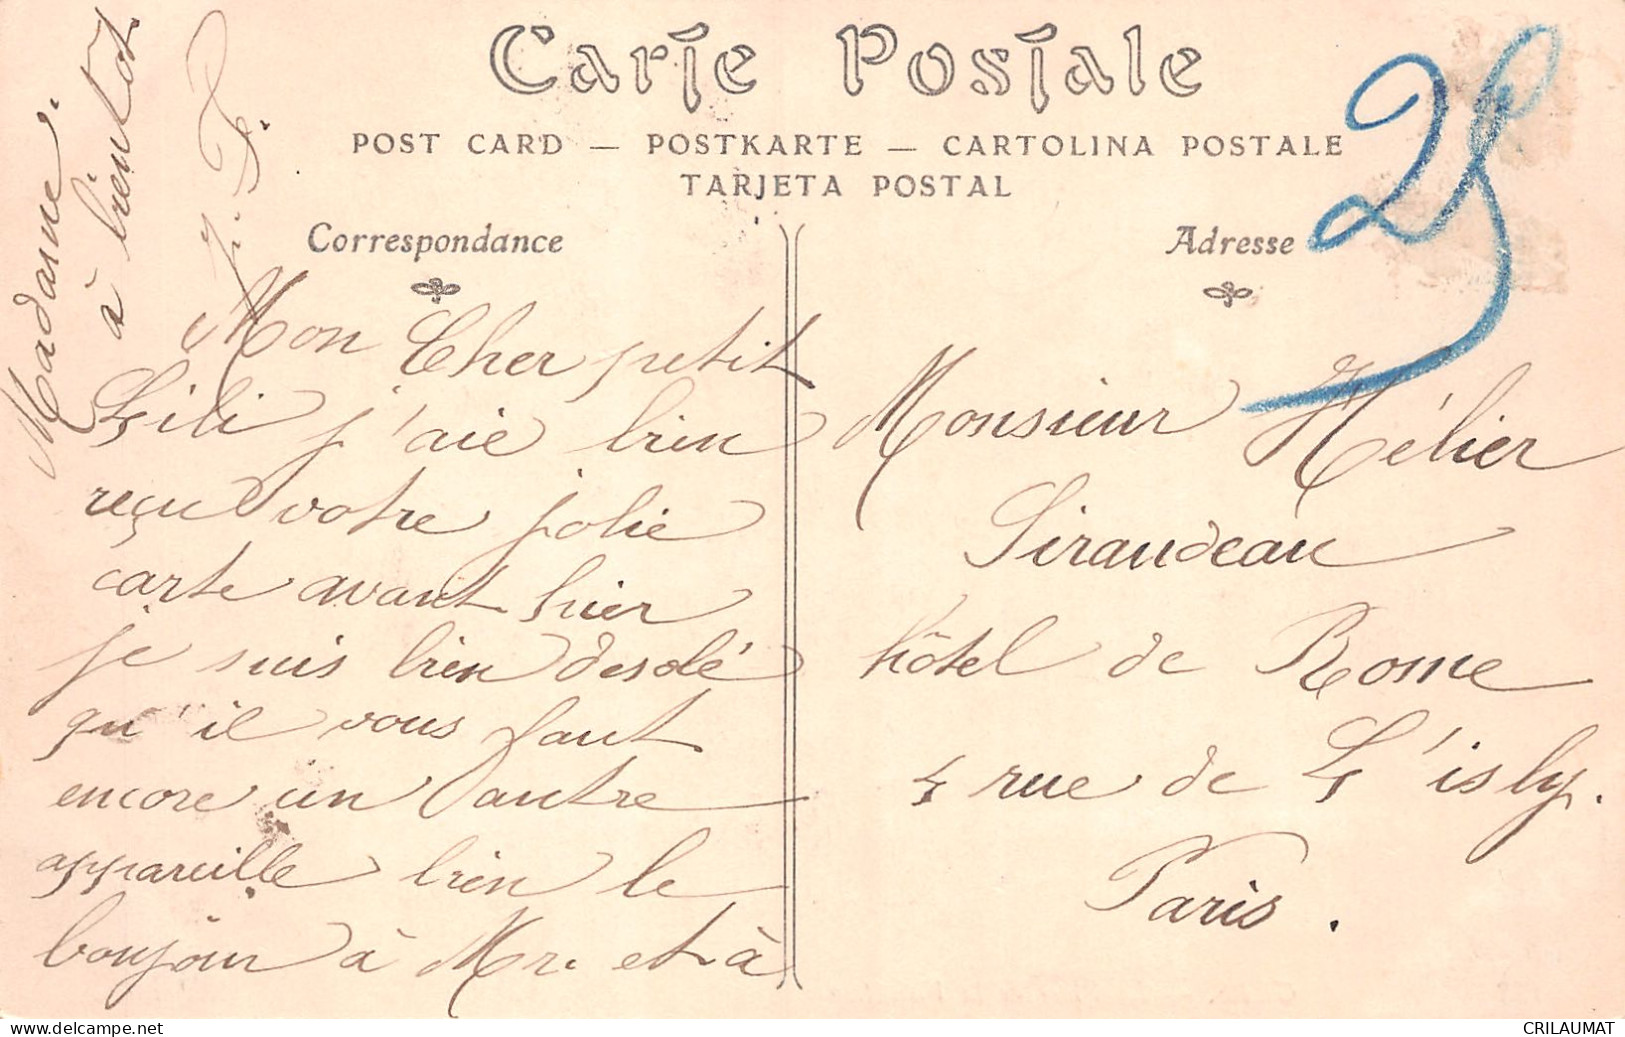 Carte Postale
POST CARD — POSTKARTE — CARTOLINA POSTALE
TARJETA POSTAL
Correspondance
Mon Cher petit
Lili j'aie bien
reçu votre jolie
carte avant hier
je suis bien désolé
qu'il vous faut
encore un autre
appareille bien le
bonjour à Mr. et à
Madame.
à bientot.
Adresse
25
Monsieur Hélier
Sirandeau
hôtel de Rome
4 rue de L'isly.
Paris.
CRILAUMAT